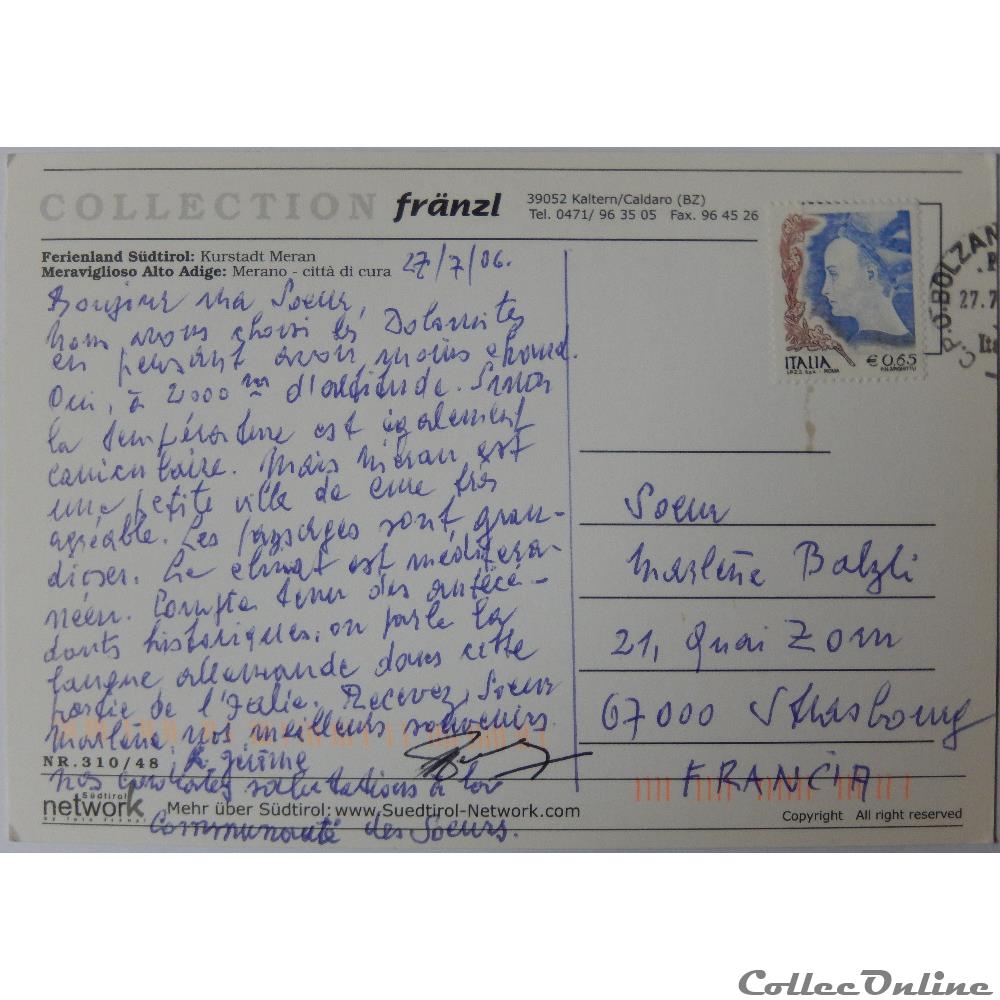 COLLECTION fränzl
39052 Kaltern/Caldaro (BZ)
Tel. 0471/ 96 35 05 Fax. 96 45 26
Ferienland Südtirol: Kurstadt Meran
Meraviglioso Alto Adige: Merano - città di cura
27/7/06.
Bonjour ma Soeur,
nous avons choisi les Dolomites
en pensant avoir moins chaud.
Oui, à 2000 m d'altitude. Sinon
la température est également
caniculaire. Mais Méran est
une petite ville de cure très
agréable. Les paysages sont gran-
dioses. Le climat est méditerra-
néen. Compte tenu des antécé-
dents historiques, on parle la
langue allemande dans cette
partie de l'Italie. Recevez, Soeur
Marlène, nos meilleurs souvenirs.
NR.310/48
nos salutations à la
Communauté des Soeurs.
Südtirol
network
Mehr über Südtirol: www.Suedtirol-Network.com
ITALIA €0,65
I.P.Z.S. S.p.A. - ROMA
P.O. BOLZAN
27.7
Ita
Soeur
Marlène Balzli
21, Quai Zorn
67000 Strasbourg
FRANCIA
Copyright All right reserved
CollecOnline